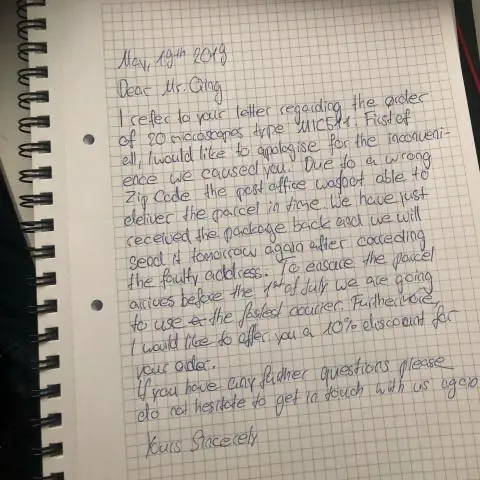 May, 19th 2019
Dear Mr. Qing
I refer to your letter regarding the order
of 20 microscopes type MIC511. First of
all, I would like to apologise for the inconveni-
ence we caused you. Due to a wrong
Zip Code the post office was not able to
deliver the parcel in time. We have just
received the package back and we will
send it tomorrow again after correcting
the faulty address. To ensure the parcel
arrives before the 1st of July we are going
to use the fastest courier. Furthermore
I would like to offer you a 10% discount for
your order.
If you have any further questions please
do not hesitate to get in touch with us again
Yours Sincerely